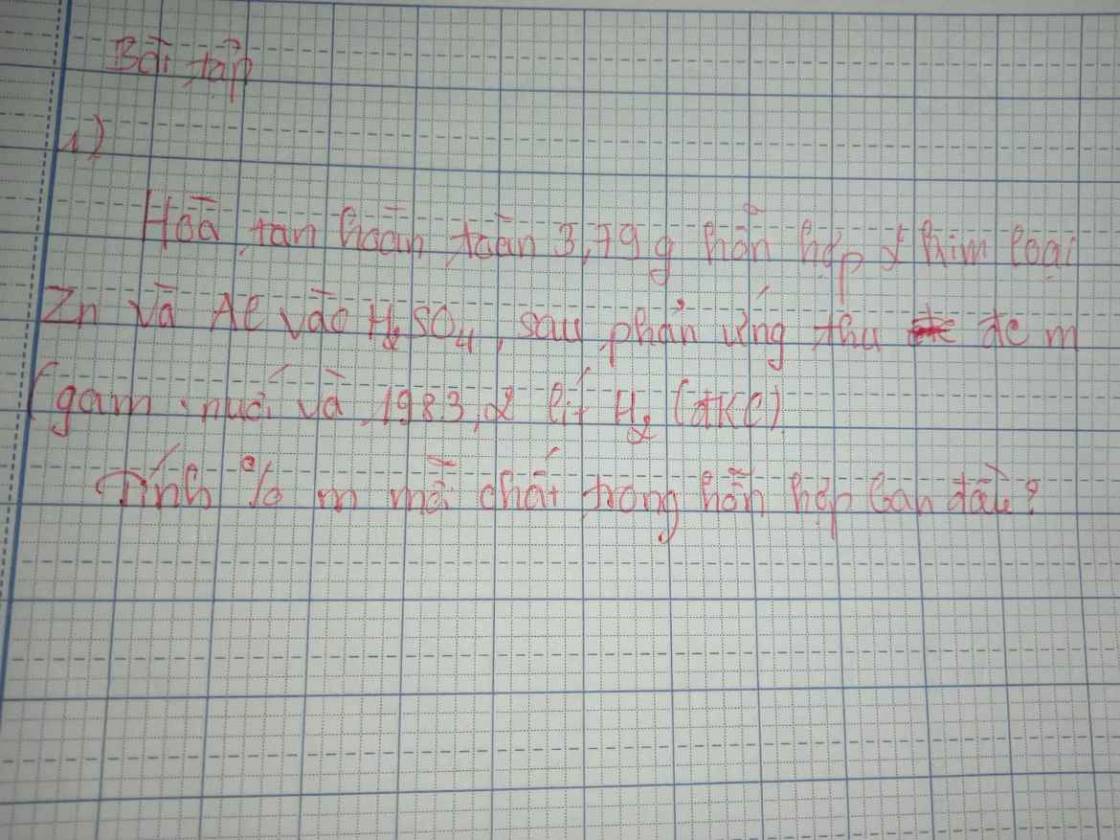 Bài tập
1)
Hoà tan hoàn toàn 3,79 g hỗn hợp 2 kim loại
Zn và Al vào H₂SO₄, sau phản ứng thu đc m
(gam muối và 1983,2 lít H₂ (đkc)
Tính % m mỗi chất trong hỗn hợp ban đầu?